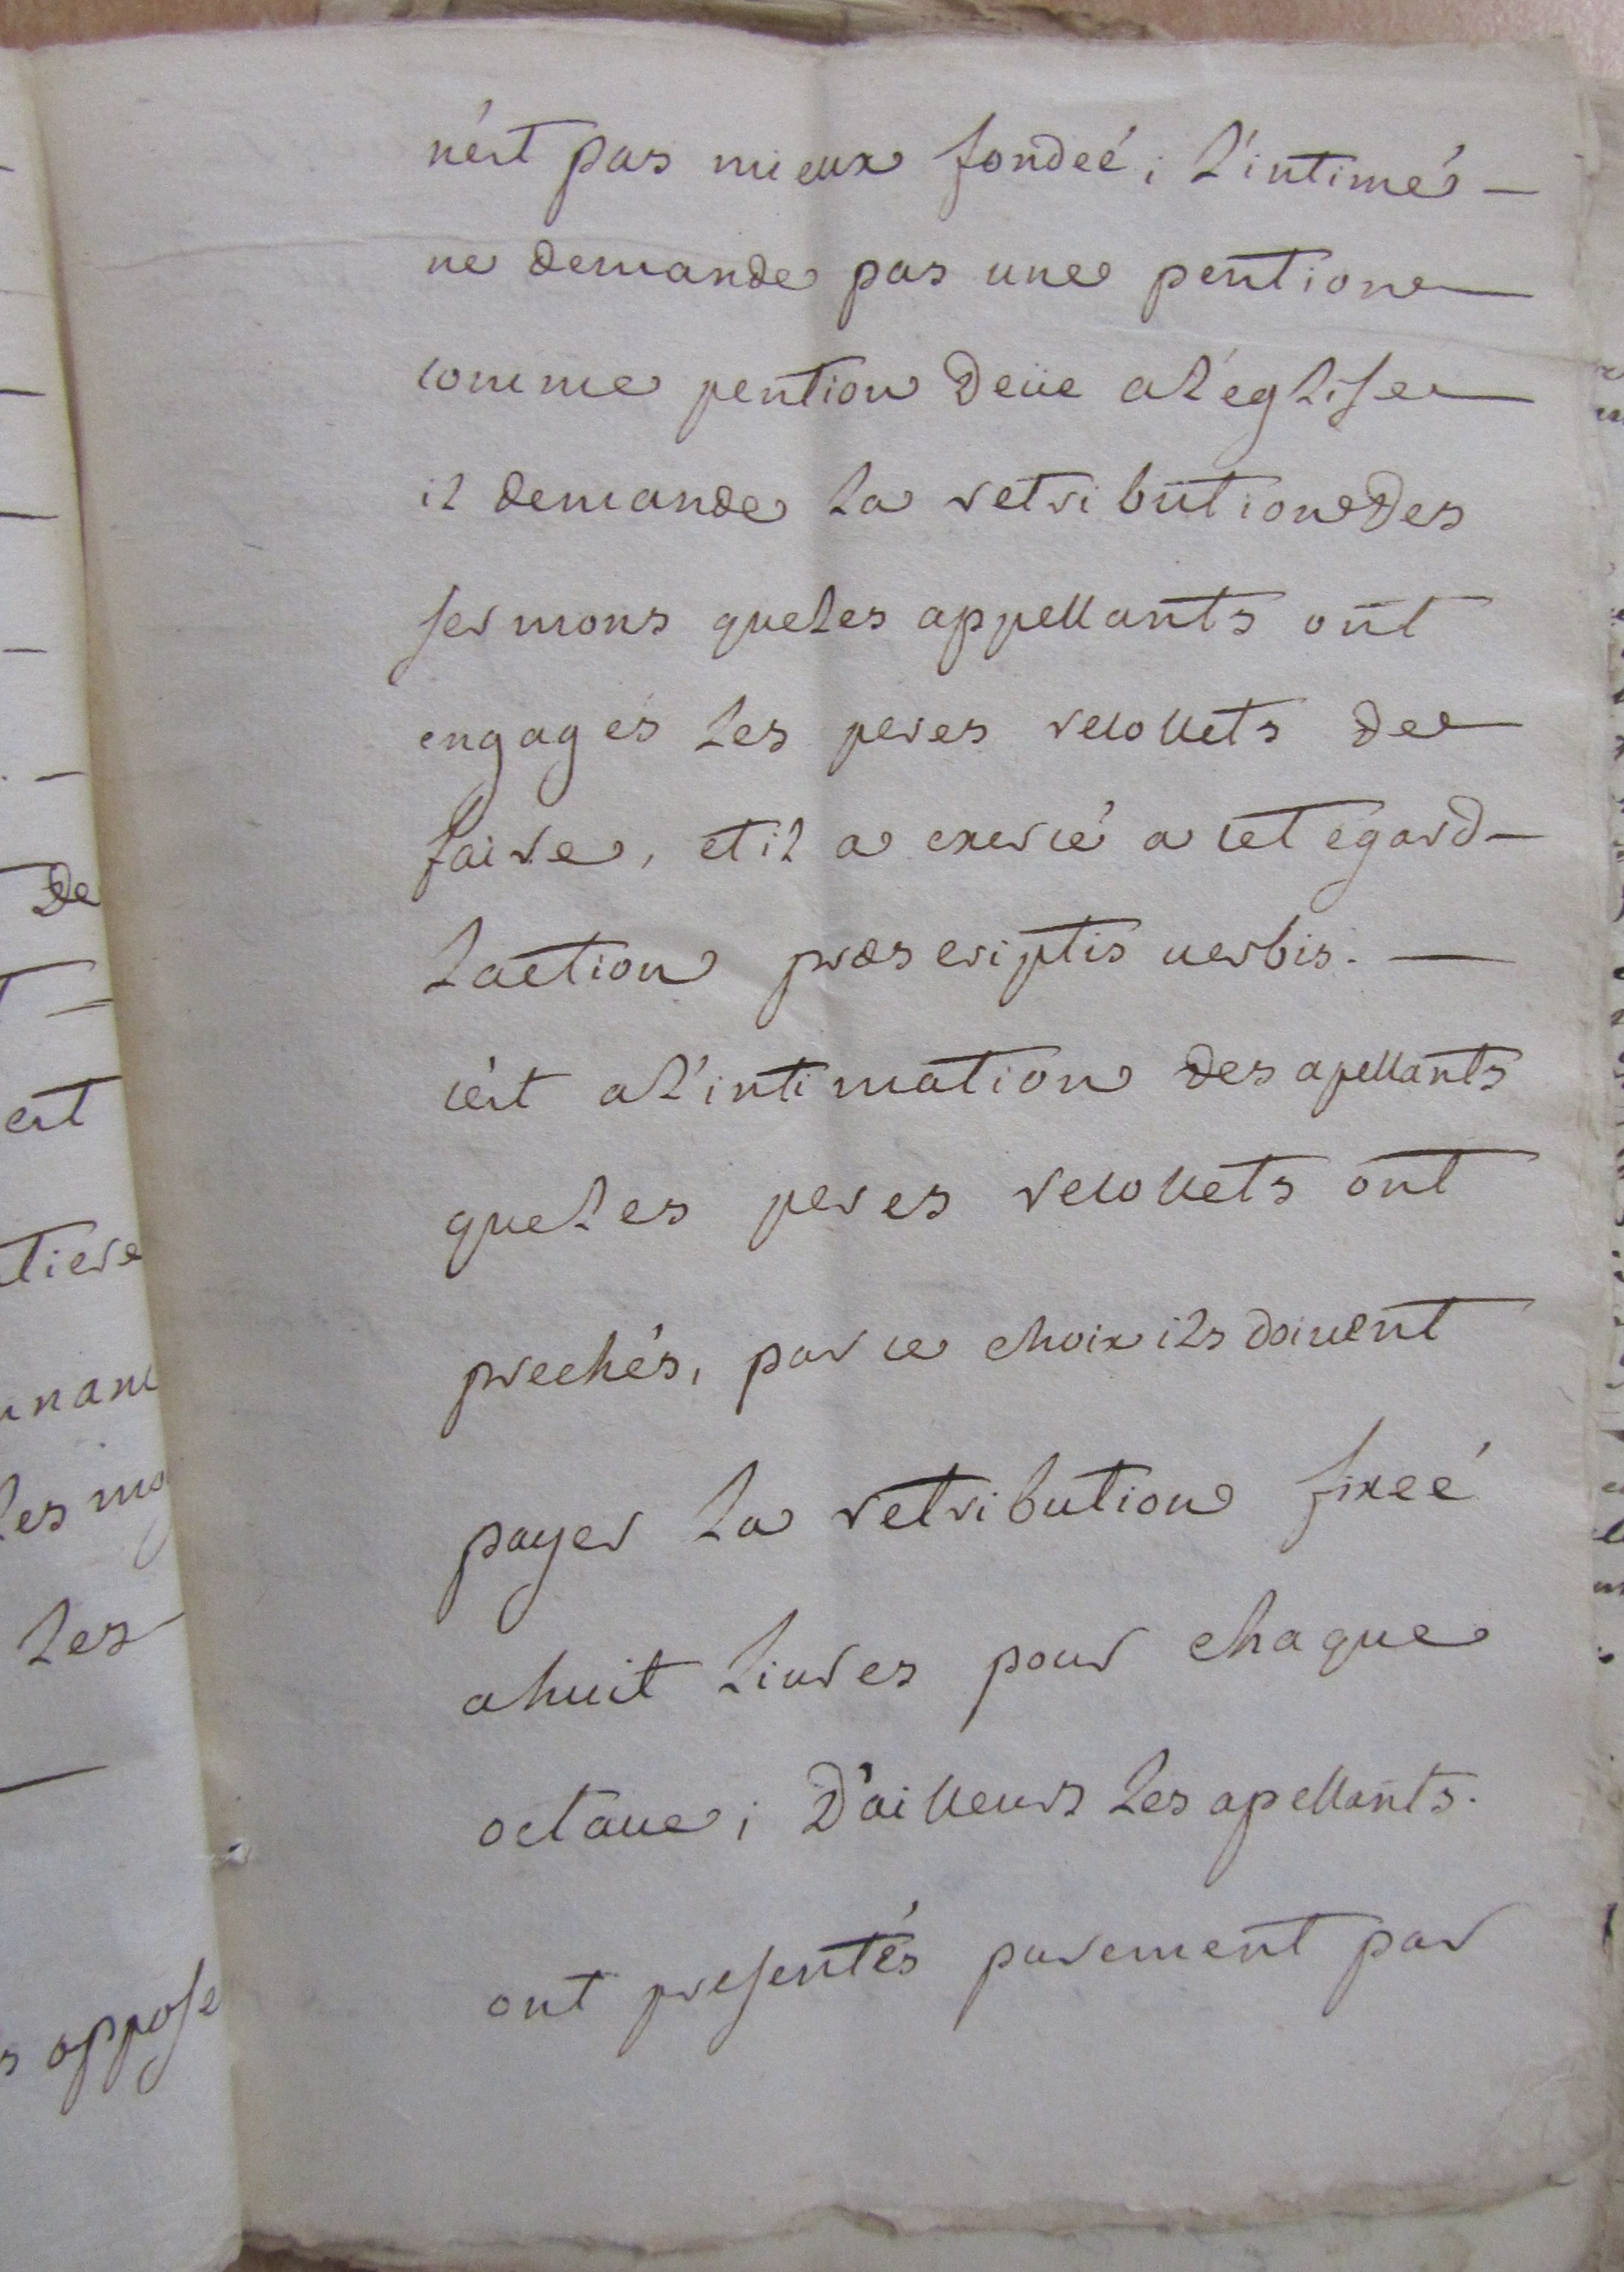 n'est pas mieux fondeé; l'intimé -
ne demande pas une pention
comme pention deüe al'eglise
il demande la retribution des
sermons queles appellants ont
engagés les peres recollets de
faire, etil a exercé a cet egard -
laction præscriptis verbis. -
c'est al'intimation des apellants
queles peres recollets ont
prechés, par ce choix ils doivent
payer la retribution fixeé
ahuit livres pour chaque
octave; D'ailleurs les apellants.
ont presentés purement par
De
est
tiere
les
oppose